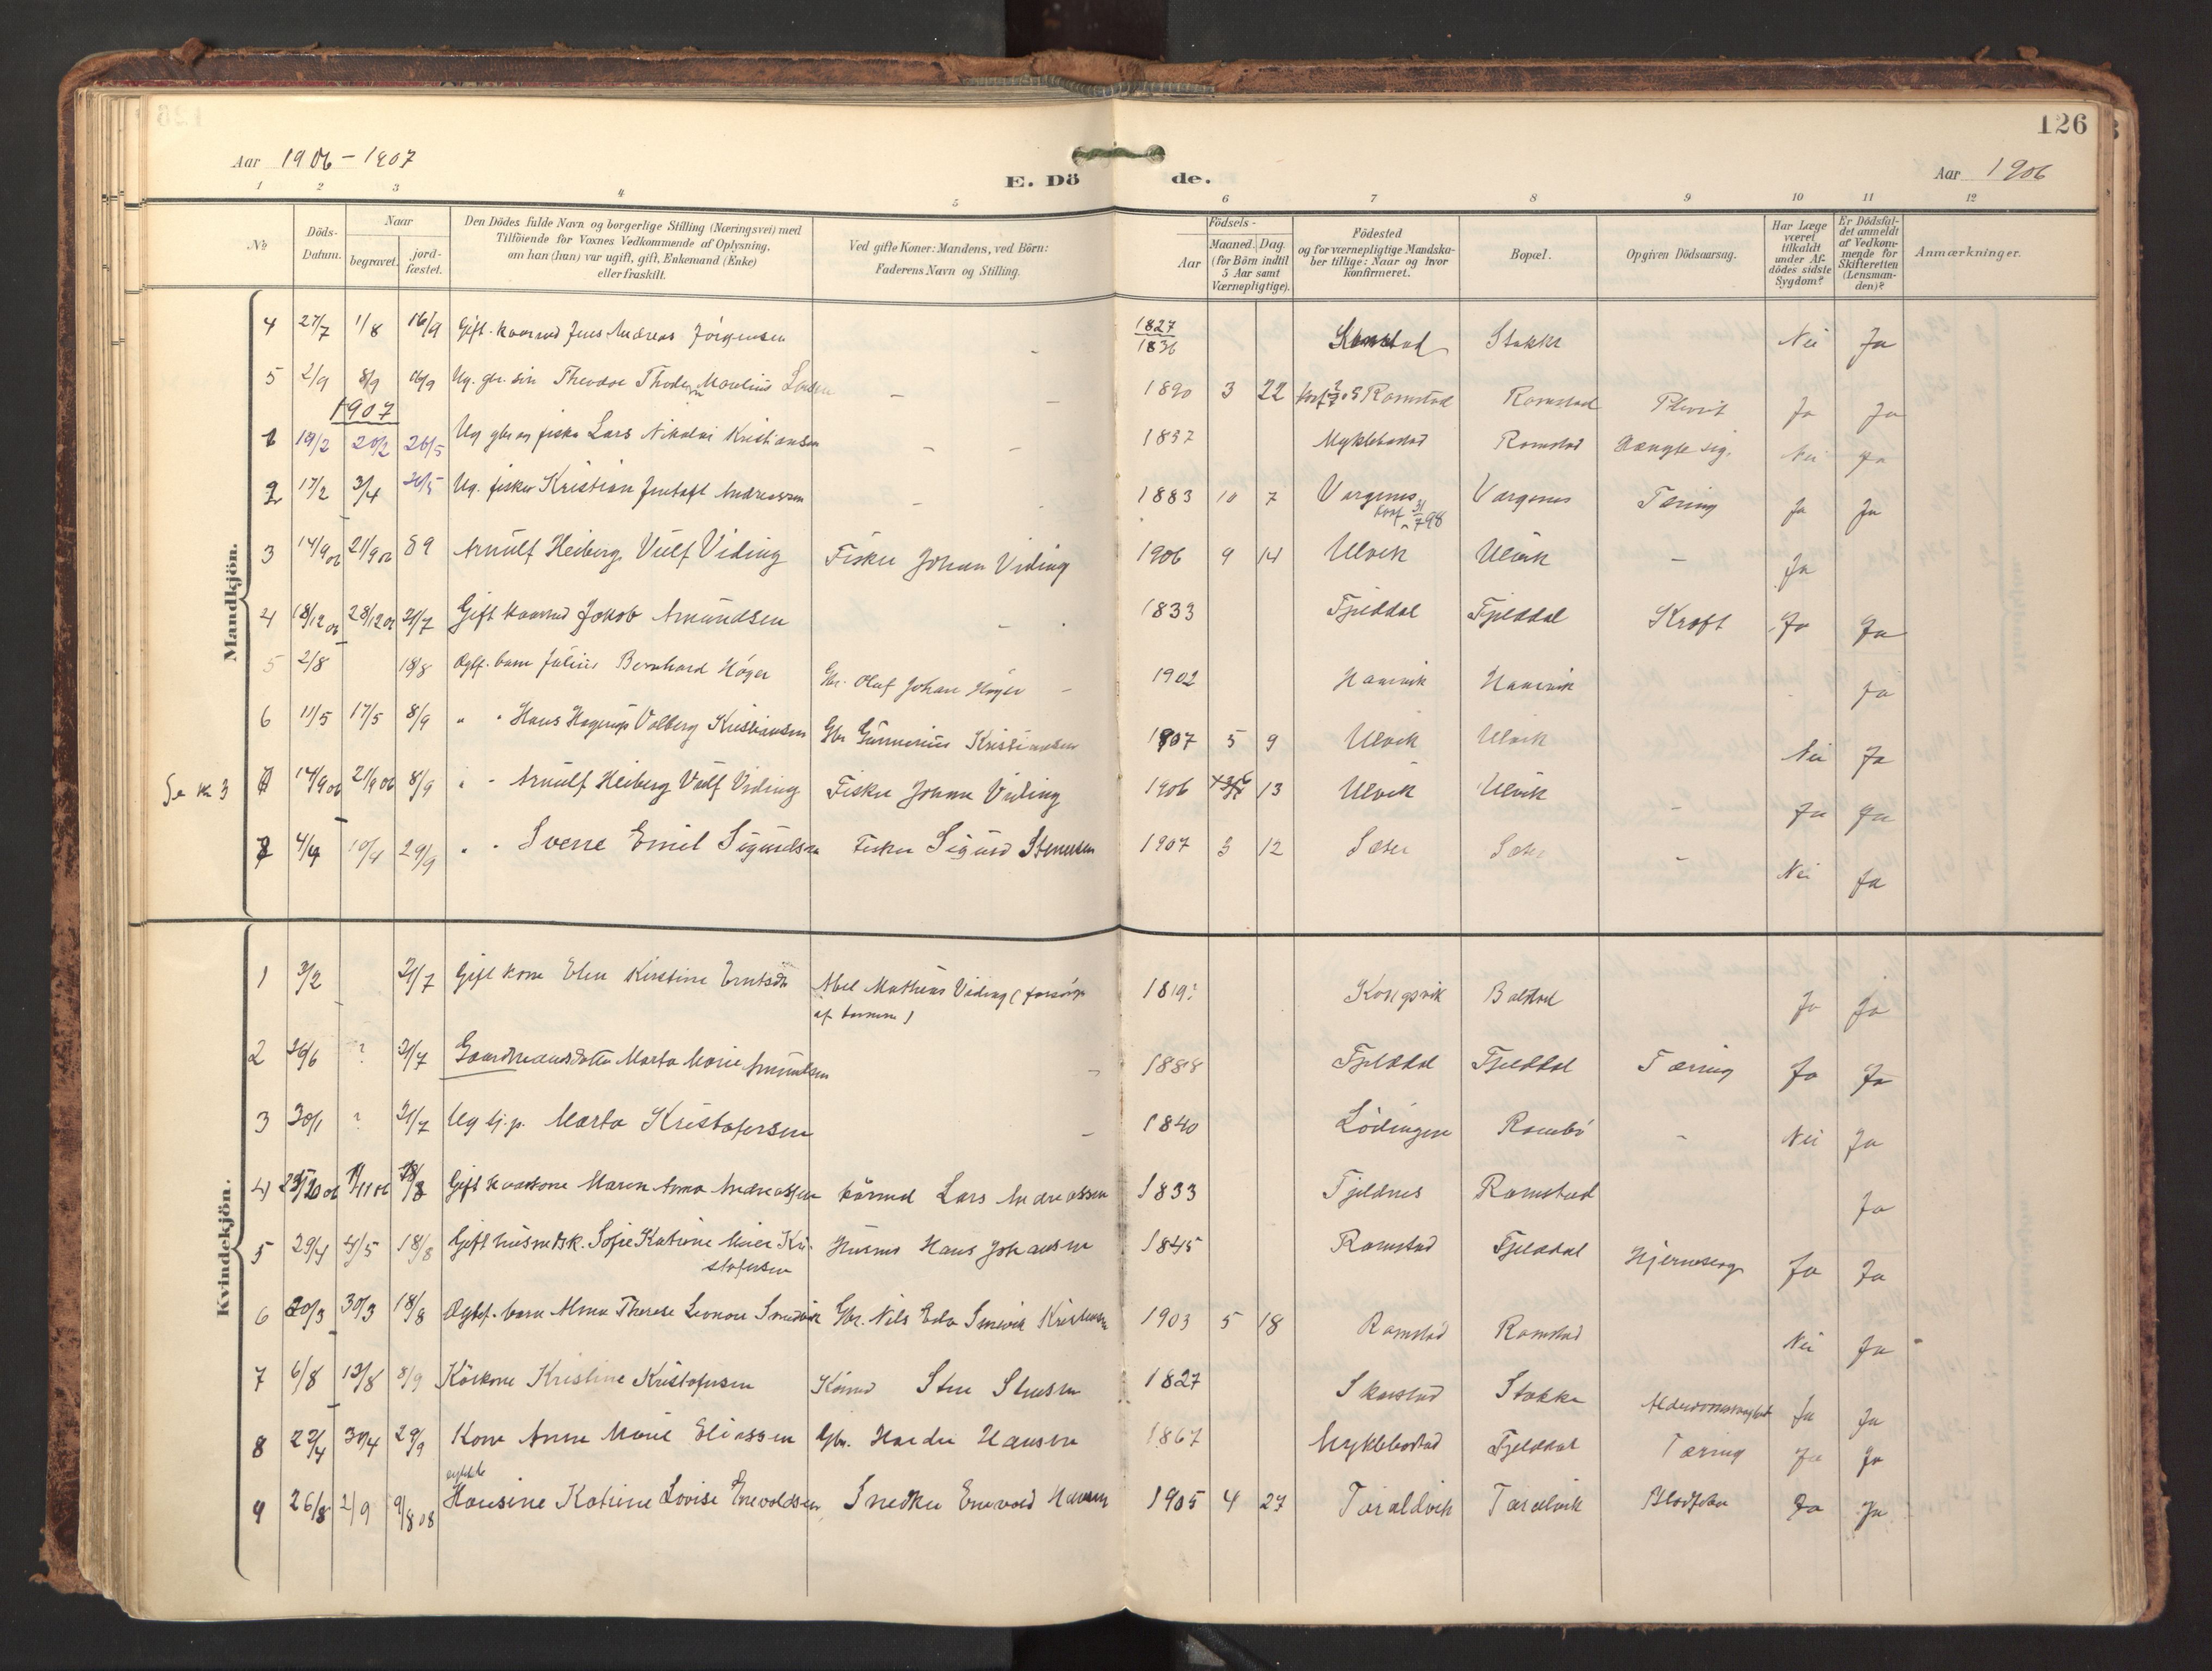 126
Aar 1906 - 1907
E. Dö
de.
Aar 1906
1 2 3 4 5 6 7 8 9 10 11 12
No
Döds-Datum.
Naar
begravet.
jord-fæstet.
Den Dödes fulde Navn og borgerlige Stilling (Næringsvei) med
Tilföiende for Voxnes Vedkommende af Oplysning,
om han (hun) var ugift, gift, Enkemand (Enke)
eller fraskilt.
Ved gifte Koner: Mandens, ved Börn:
Faderens Navn og Stilling.
Födsels-
Aar
Maaned. Dag.
(for Börn indtil
5 Aar samt
Værnepligtige).
Födested
og for værnepligtige Mandska-
ber tillige: Naar og hvor
konfirmeret.
Bopæl.
Opgiven Dödsaarsag.
Har Læge
været
tilkaldt
under Af-
dödes sidste
Sygdom?
Er Dödsfal-
det anmeldt
af Vedkom-
mende for
Skifteretten
(Lensman-
den)?
Anmærkninger.
Mandkjön.
4 27/7 1/8 16/9 Gift. kaarmd Jens Andreas Jörgensen - 1827 1836 Stokke Nei Ja
5 2/9 8/9 16/9 Ug. gbr. sön Theodor - - 1890 3 22 Ramstad Ramstad Plevrit Ja Ja
1907
1 19/2 20/2 26/5 Ug gbr og fisker Lars Nikolai Kristiansen - - 1837 Myklebostad Ramstad Hængte sig. Nei Ja
2 17/2 3/4 26/5 Ug. fisker Kristian Andreassen - 1883 10 7 Vargenes Vargenes Tæring Ja Ja
Konf 31/7 98
3 14/9 06 21/9 06 8 9 Arnulf Heiberg Vulf Viding Fisker Johan Viding 1906 9 14 Ulvik Ulvik - Ja
4 18/12 06 28/12 06 21/7 Gift kaarmd Jakob Amundsen - 1833 Fjelddal Fjelddal Kræft Ja Ja
5 2/8 18/8 Ægtf. barn Julius Bernhard Höyer Gbr. Oluf Johan Höyer - 1902 Hamrvik Hamrvik Ja
6 11/5 17/5 8/9 " " Hans Hagerup Valberg Kristiansen Gbr Gunnerius Kristiansen 1907 5 9 Ulvik Ulvik Nei Ja
Se No 3 14/9 06 21/9 06 8/9 " " Arnulf Heiberg Vulf Viding Fisker Johan Viding 1906 13 Ulvik Ulvik - Ja Ja
7 4/4 10/4 29/9 " " Sverre Emil Sigurdsen Fisker Sigurd Stenersen 1907 3 12 Sæter Sæter - Nei Ja
Kvindekjön.
1 3/2 21/7 Gift kone Elen Kirstine Erntsdtr Abel Mathias Viding (forsörges
af barnene) 1819? Kongsvik Balstad Ja Ja
2 26/6 ? 21/7 Gaardmandsdatter Marta Marie Amundsen - 1888 Fjelddal Fjelddal Tæring Ja Ja
3 30/1 ? 21/7 Ug tj.p. Marta Kristofersen - 1840 Lödingen - Nei Ja
4 11/11 06 18/8 Gift kaarkone Maren Anna Andreassen kårmd Lars Andreassen 1833 Fjeldnes Ramstad Ja
5 29/4 4/5 18/8 Gift husmdsk. Sofie Katrine Marie Kri-
stofersen Husmd Hans Johansen 1845 Ramstad Fjelddal Ja Ja
6 20/3 30/3 18/8 Ægtef. barn Alma Therese Leonore Smedvik Gbr. Nils Kristensen 1903 5 18 Ramstad Ramstad Nei Ja
7 6/8 13/8 8/9 Kårkone Kristine Kristofersen Kårmd Sten Stensen 1827 Skarstad Stokke Alderdomssvaghed Ja Ja
8 22/4 30/4 29/9 Kone Anne Marie Eliassen Gbr. Hansen 1867 Myklebostad Fjelddal Tæring Ja Ja
9 26/8 2/9 9/8 08 Hansine Katrine Lovise Enevoldsen Snedker Enevold Hansen 1905 4 27 Taraldvik Taraldvik Ja Ja